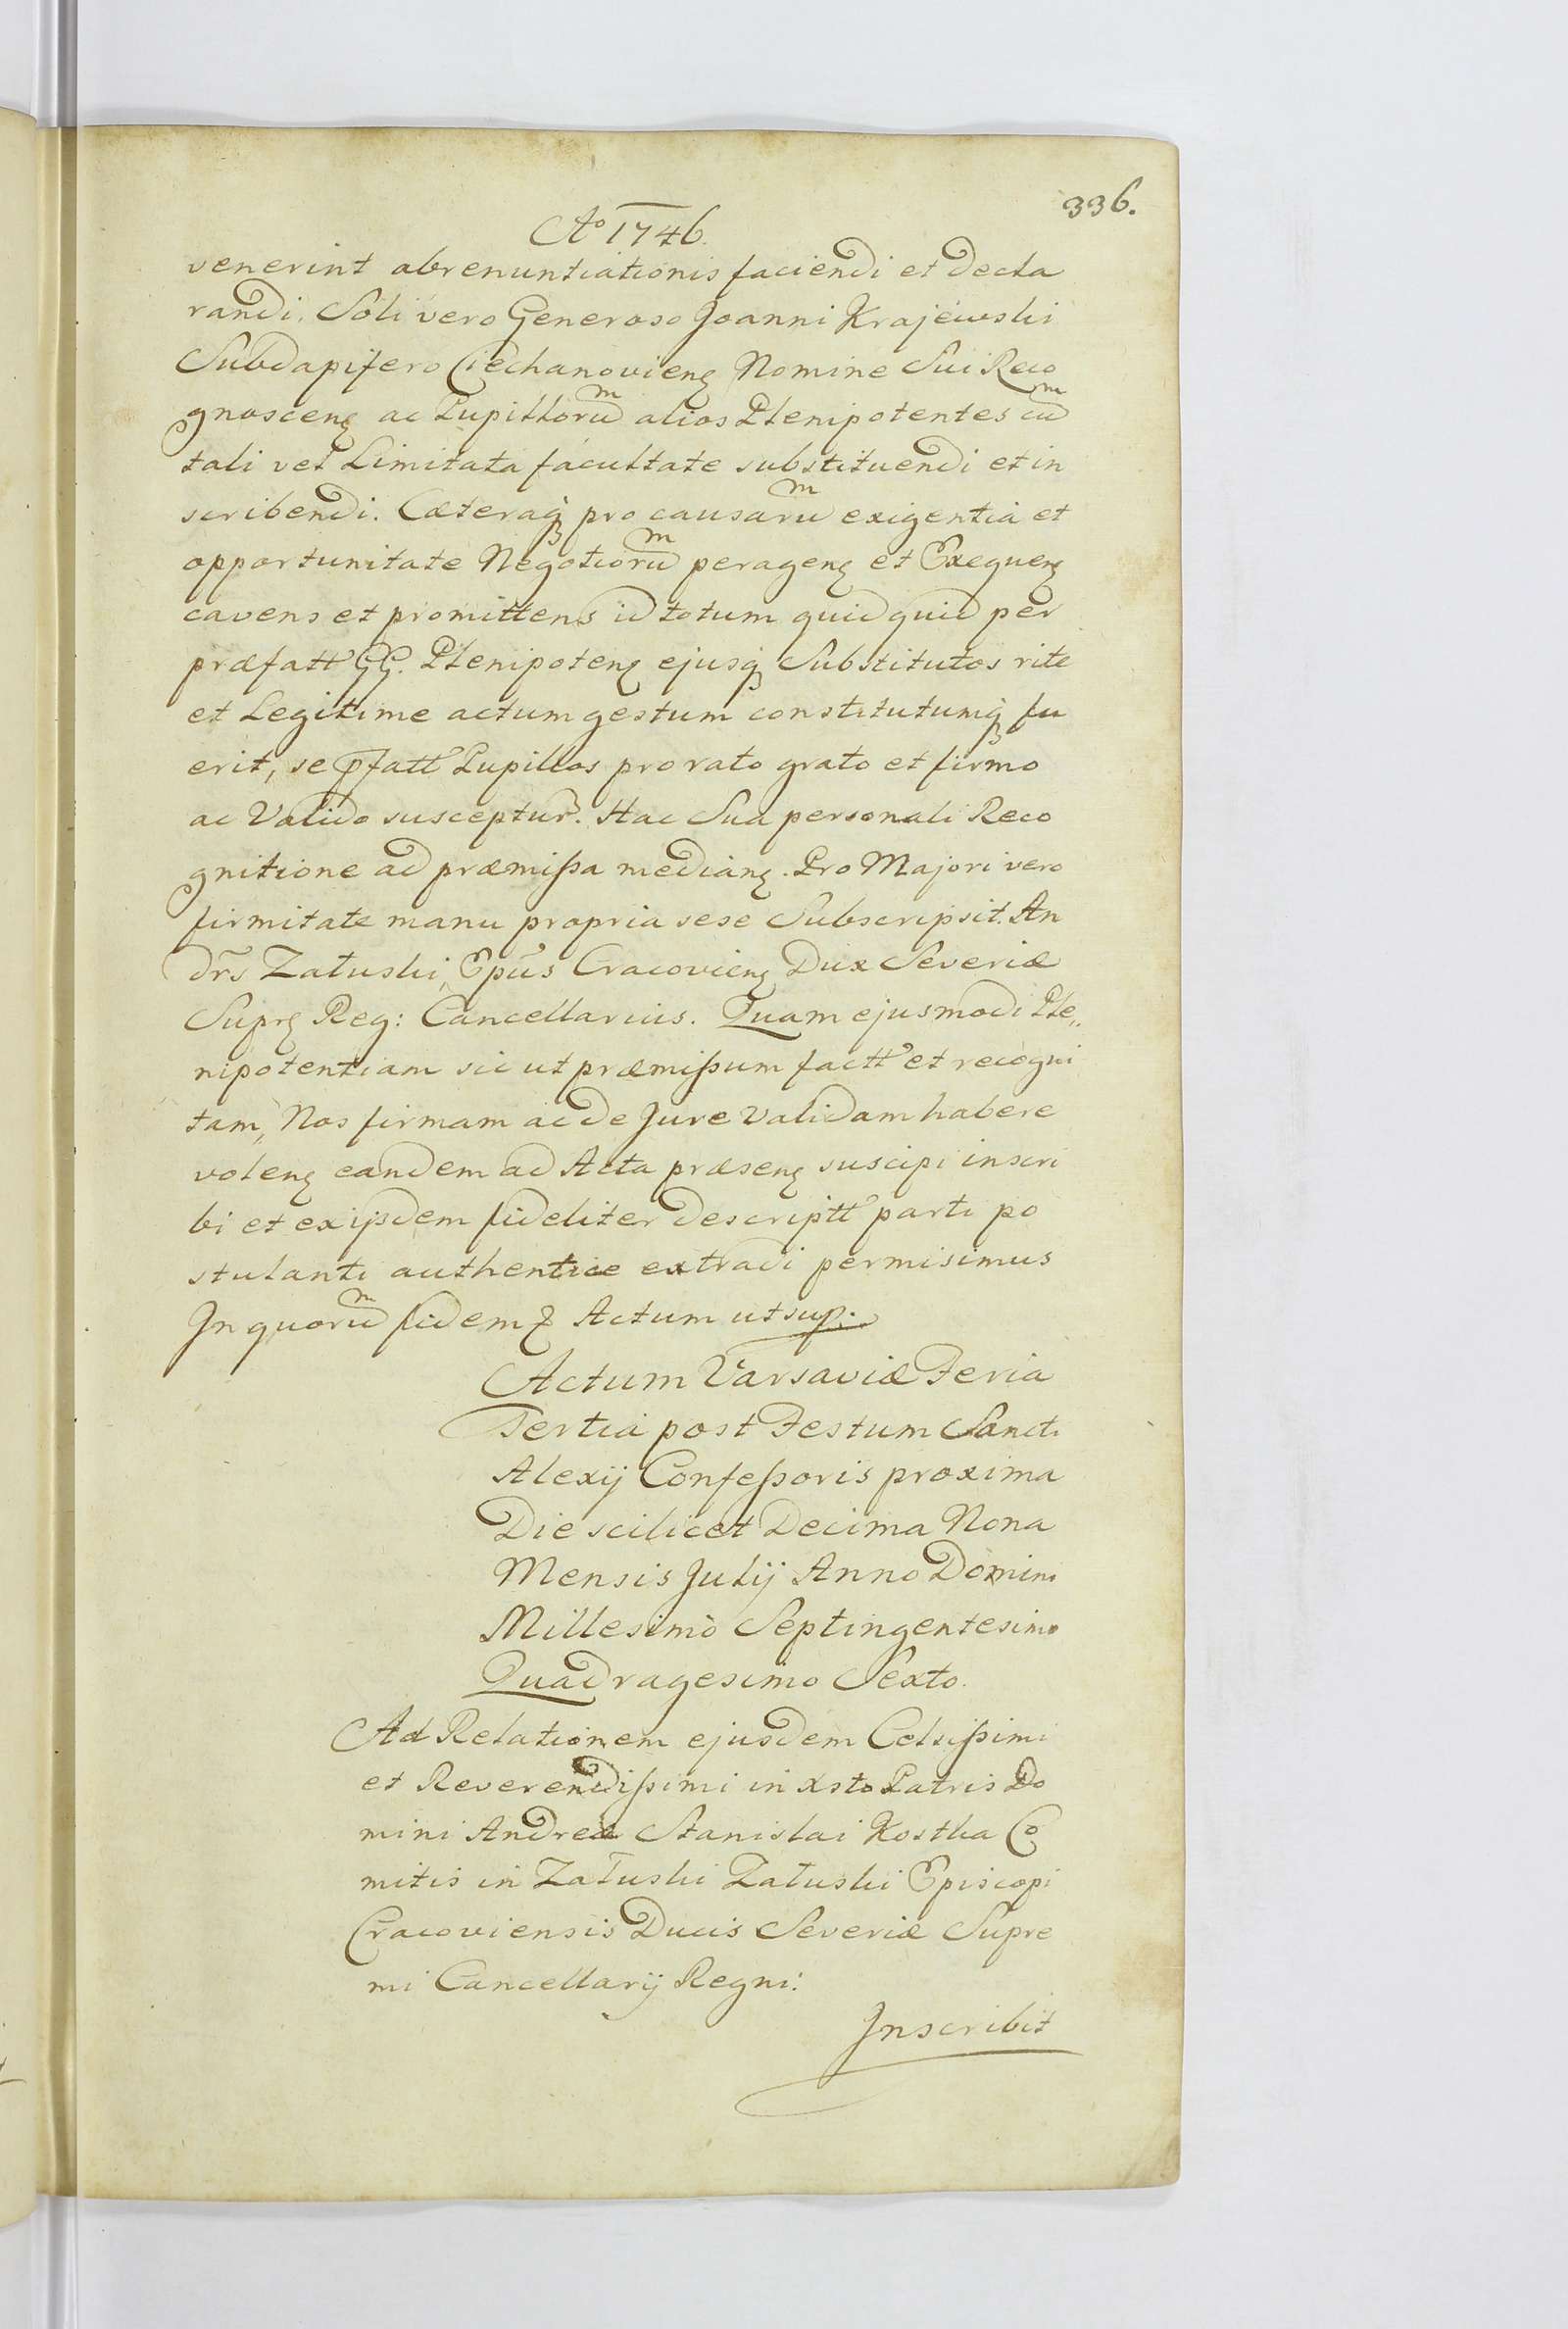 336.
Ao 1746.
venerint abrenuntiationis faciendi et decla
randi. Soli vero Generoso Joanni Krajewski
Subdapifero Ciechanovieng Nomine Sui Reco
gnosceng ac Pupilloru͞m alios Plenipotentes cu͞m
tali vel Limitata facultate substituendi et in
scribendi. Cæteraqꝫ pro causaru͞m exigentia et
opportunitate Negotioru͞m perageng et Exequeng
cavens et promittens id totum quidquid per
præfatt GG. Plenipoteng ejusqꝫ Substitutos rite
et Legitime actum gestum constitutumqꝫ fu
erit, se pfatt Pupillos pro rato grato et firmo
ac Valido susceptur. Hac Sua personali Reco
gnitione ad præmissa mediang. Pro Majori vero
firmitate manu propria sese Subscripsit. An
drs Załuski, Epus Cracovieng Dux Severiæ
Suprg Reg: Cancellarius. Quam ejusmodi Ple„
nipotentiam sic ut præmissum factt et recogni
tam, Nos firmam ac de Jure Validam habere
voleng eandem ad Acta præseng suscipi inscri
bi et ex ijsdem fideliter descriptt parti po
stulanti authentice extradi permisimus
In quoru͞m fidem ꝛ Actum ut sup.
Actum Varsaviæ Feria
Tertia post Festum Sancti
Alexij Confessoris proxima
Die scilicet Decima Nona
Mensis Julij Anno Domini
Millesimo Septingentesimo
Quadragesimo Sexto.
Ad Relationem ejusdem Celsissimi
et Reverendissimi in Xsto Patris Do
mini Andreæ Stanislai Kostka Co
mitis in Załuski Załuski Episcopi
Cracoviensis Ducis Severiæ Supre
mi Cancellarij Regni:
Inscribit